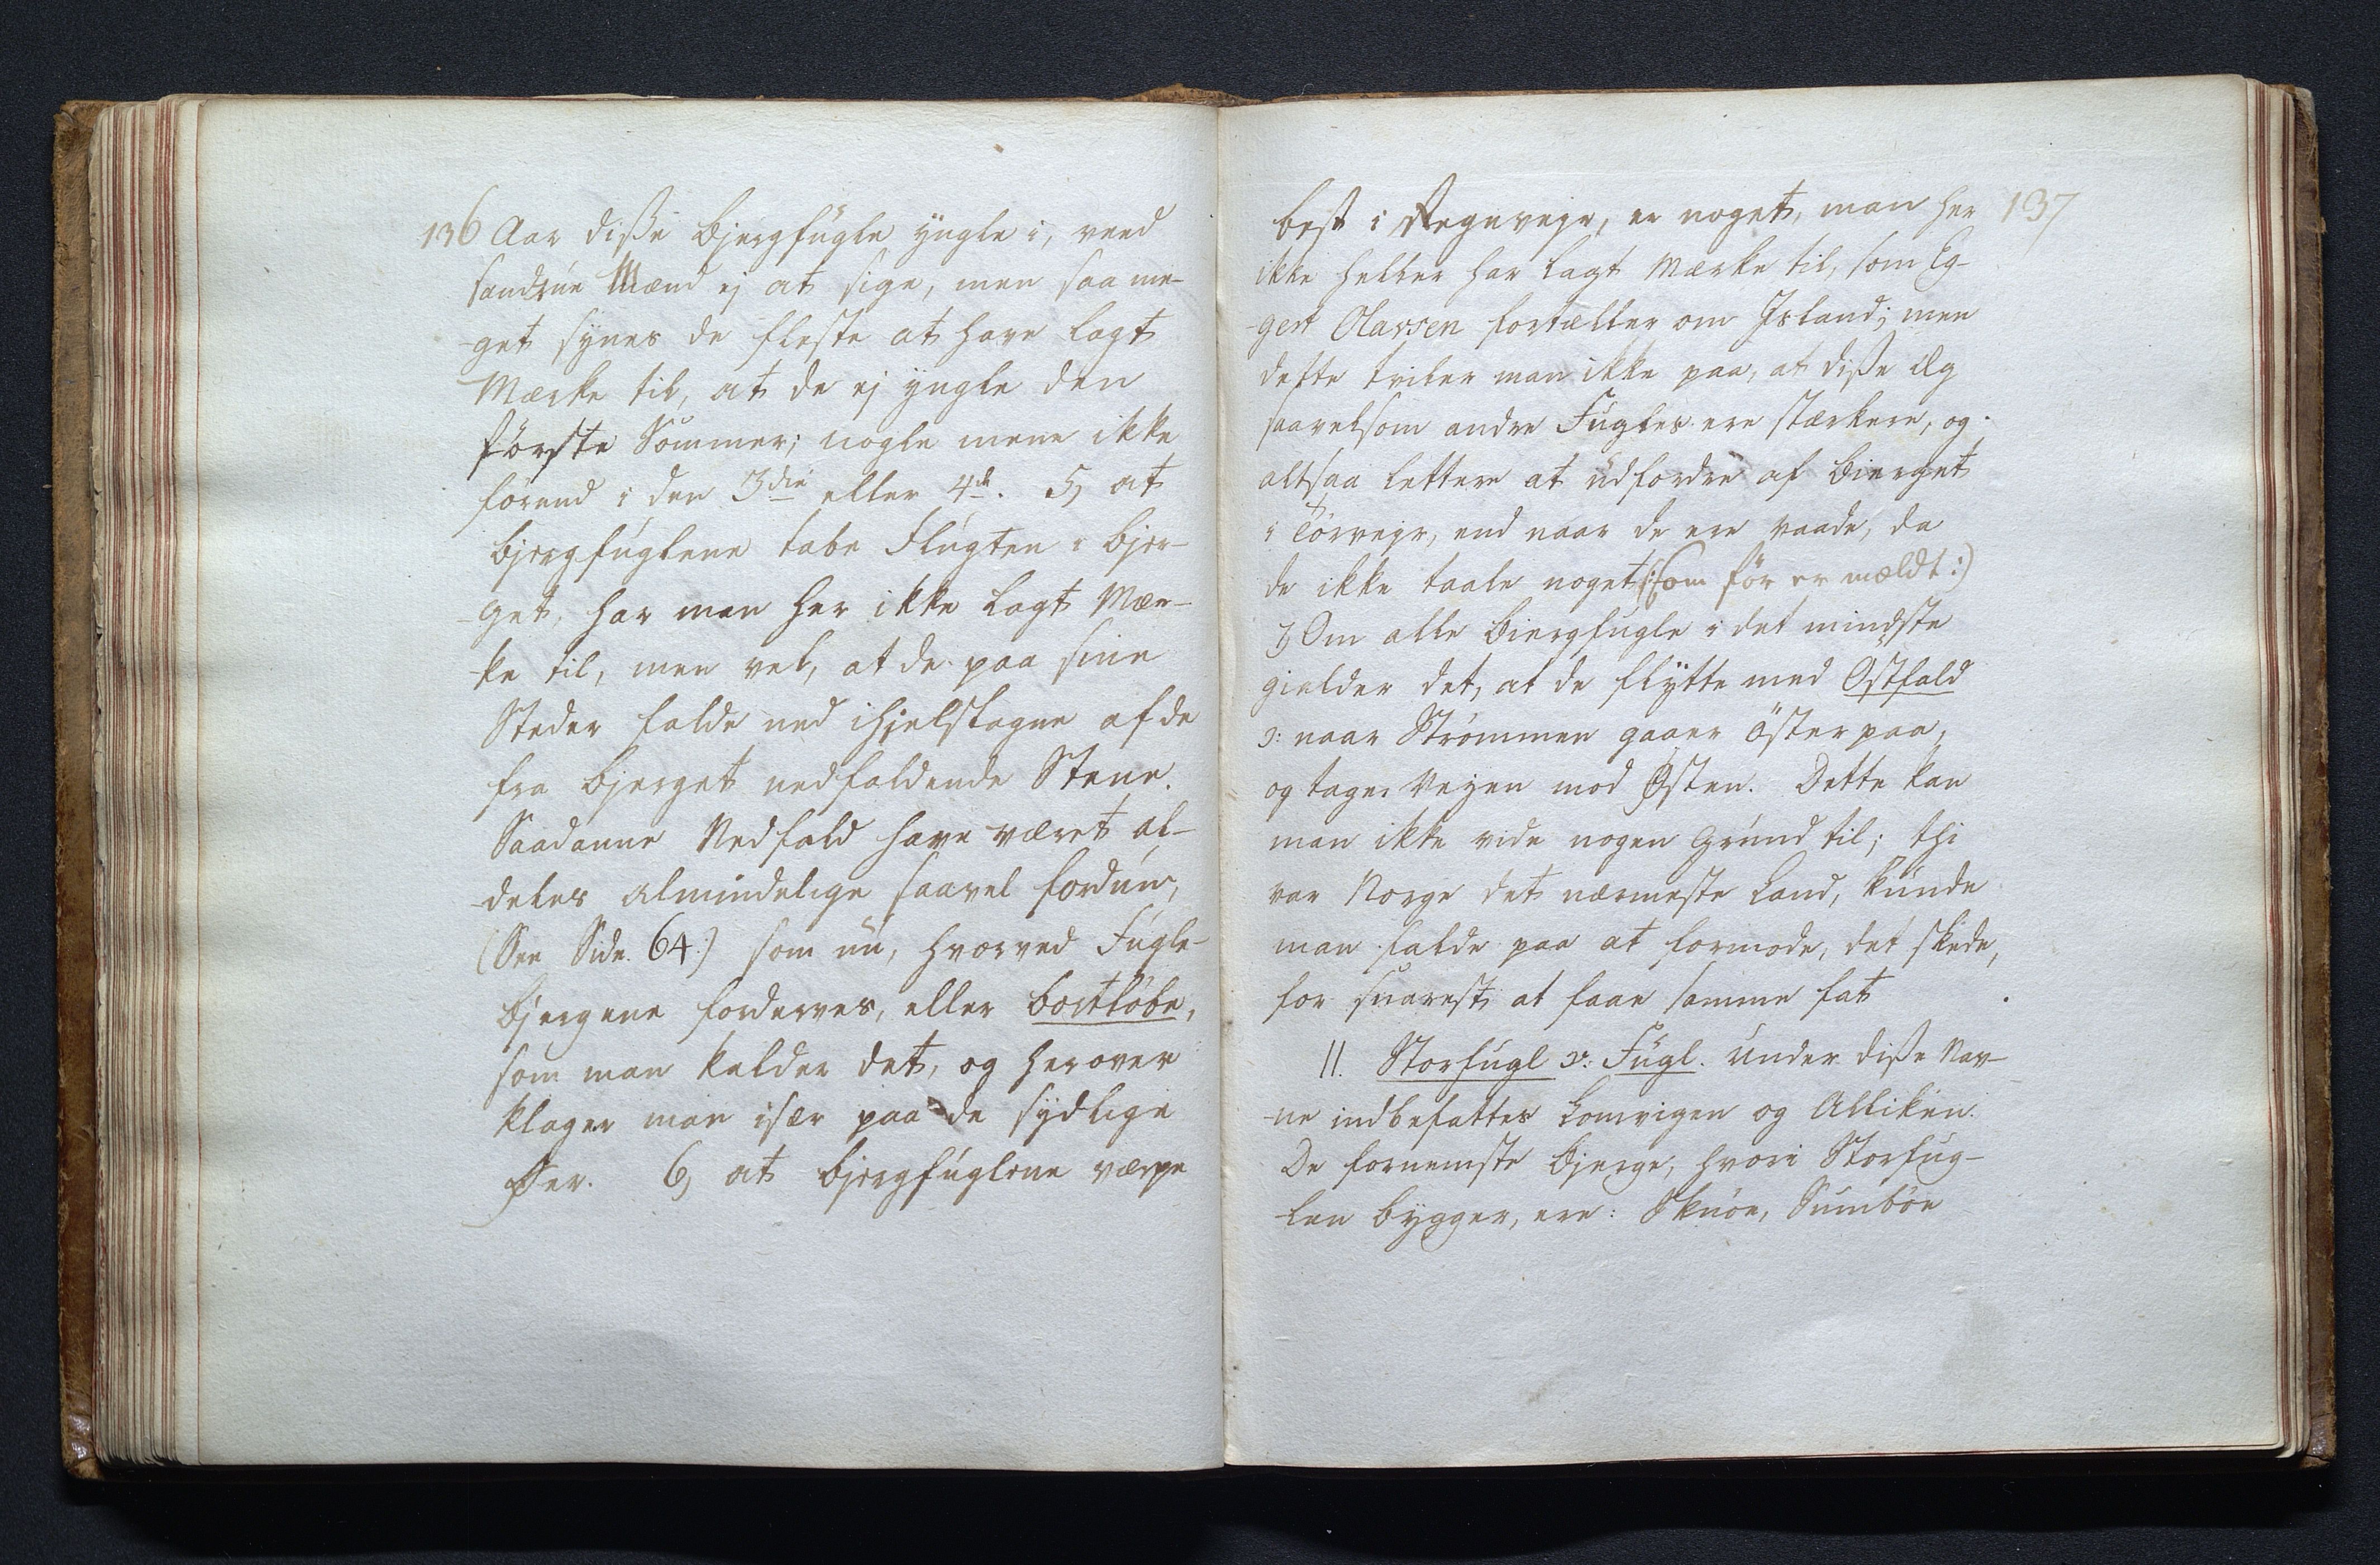 136 Aar diße Bjergfugle yngle i, veed
sandrue Mænd ej at sige, men saa me-
-get synes de fleste at have lagt
Mærke til, at de ej yngle den
förste Sommer; nogle mene ikke
förend i den 3die eller 4de. 5, at
Bjergfuglene tabe Flugten i Bjer-
-get, har man her ikke lagt Mær-
-ke til, men vel, at de paa sine
Steder falde ned ihjelslagne af de
fra Bjerget nedfaldende Stene.
Saadanne Nedfald have været al-
-deles almindelige saavel fordum,
(See Side. 64:) som nu, hvorved Fugle-
bjergene fordærves, eller bortløbe,
som man kalder det, og herover
klager man især paa de sydlige
Øer. 6, at Bjergfuglene værpe
137
best i Regnvejr, er noget, man her
ikke heller har lagt Mærke til, som Eg-
-gert Olavsen fortæller om Island; men
dette tviler man ikke paa, at diße Æg
saavelsom andre Fugles ere stærkere, og
altsaa lettere at udfordre af Bierget
i Törvejr, end naar de ere vaade, da
de ikke taale noget (:som för er mældt:)
7, Om alle Biergfugle i det mindste
gielder det, at de flytte med Østfald
ɔ: naar Strømmen gaaer österpaa,
og tager Vejen mod Østen. Dette kan
man ikke vide nogen Grund til; thi
var Norge det nærmeste Land, kunde
man falde paa at formode, det skede,
for snarest at faae samme fat
II. Storfugl ɔ: Fugl. Under diße Nav-
-ne indbefattes Lomvigen og Alliken.
De fornemste Bjerge, hvori Storfug-
-len bygger, ere: Skuöe, Sumböe